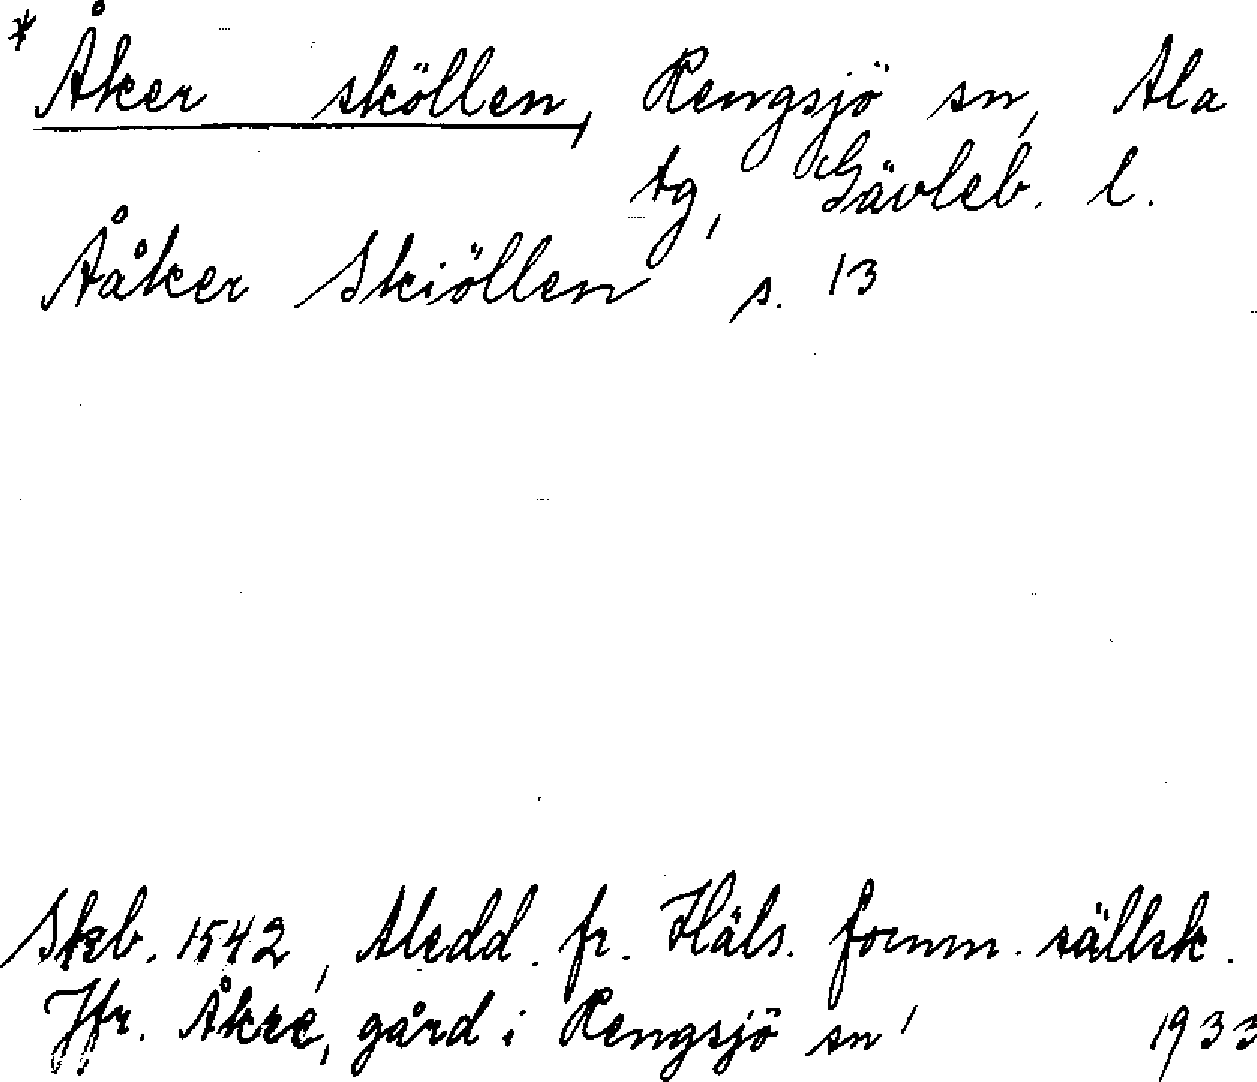 * Åker sköllen, Rengsjö sn, Ala
tg, Gävleb. l.
Aåker Skiöllen s. 13
Skb. 1542, Medd. fr. Häls. fornm. sällsk.
Jfr. Åkre, gård i Rengsjö sn 1933